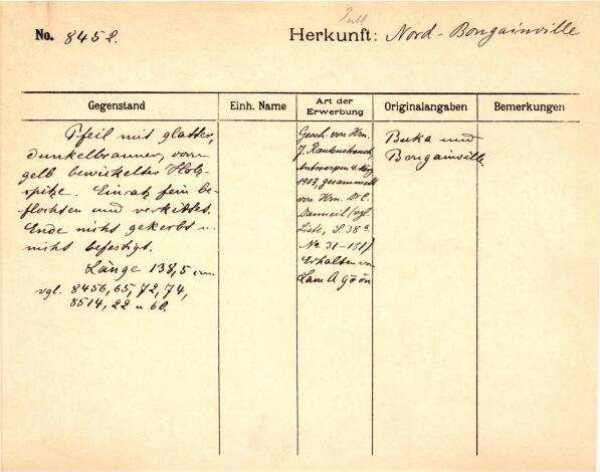 No. 8452.
Herkunft: Nord-Bougainville
Gegenstand
Einh. Name
Art der Erwerbung
Originalangaben
Bemerkungen
Pfeil mit glatter,
dunkelbrauner, vorn
gelb bewickelter Holz-
spitze. Einsatz fein be-
flochten und verkittet.
Ende nicht gekerbt u.
nicht befestigt.
Länge 138,5 cm
vgl. 8456, 65, 72, 74,
8514, 22 u 60.
Gesch. von Hrn.
J. Rautenstrauch,
Antwerpen 4. Aug
1903, gesammelt
von Hrn. Dr. C.
Danneil (vgl.
Liste, S. 38a
No 31-151)
Erhalten von
Buka und
Bougainville